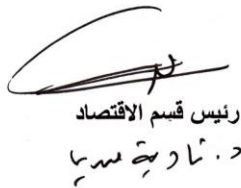 رئيس قسم الاقتصاد
د. نادية